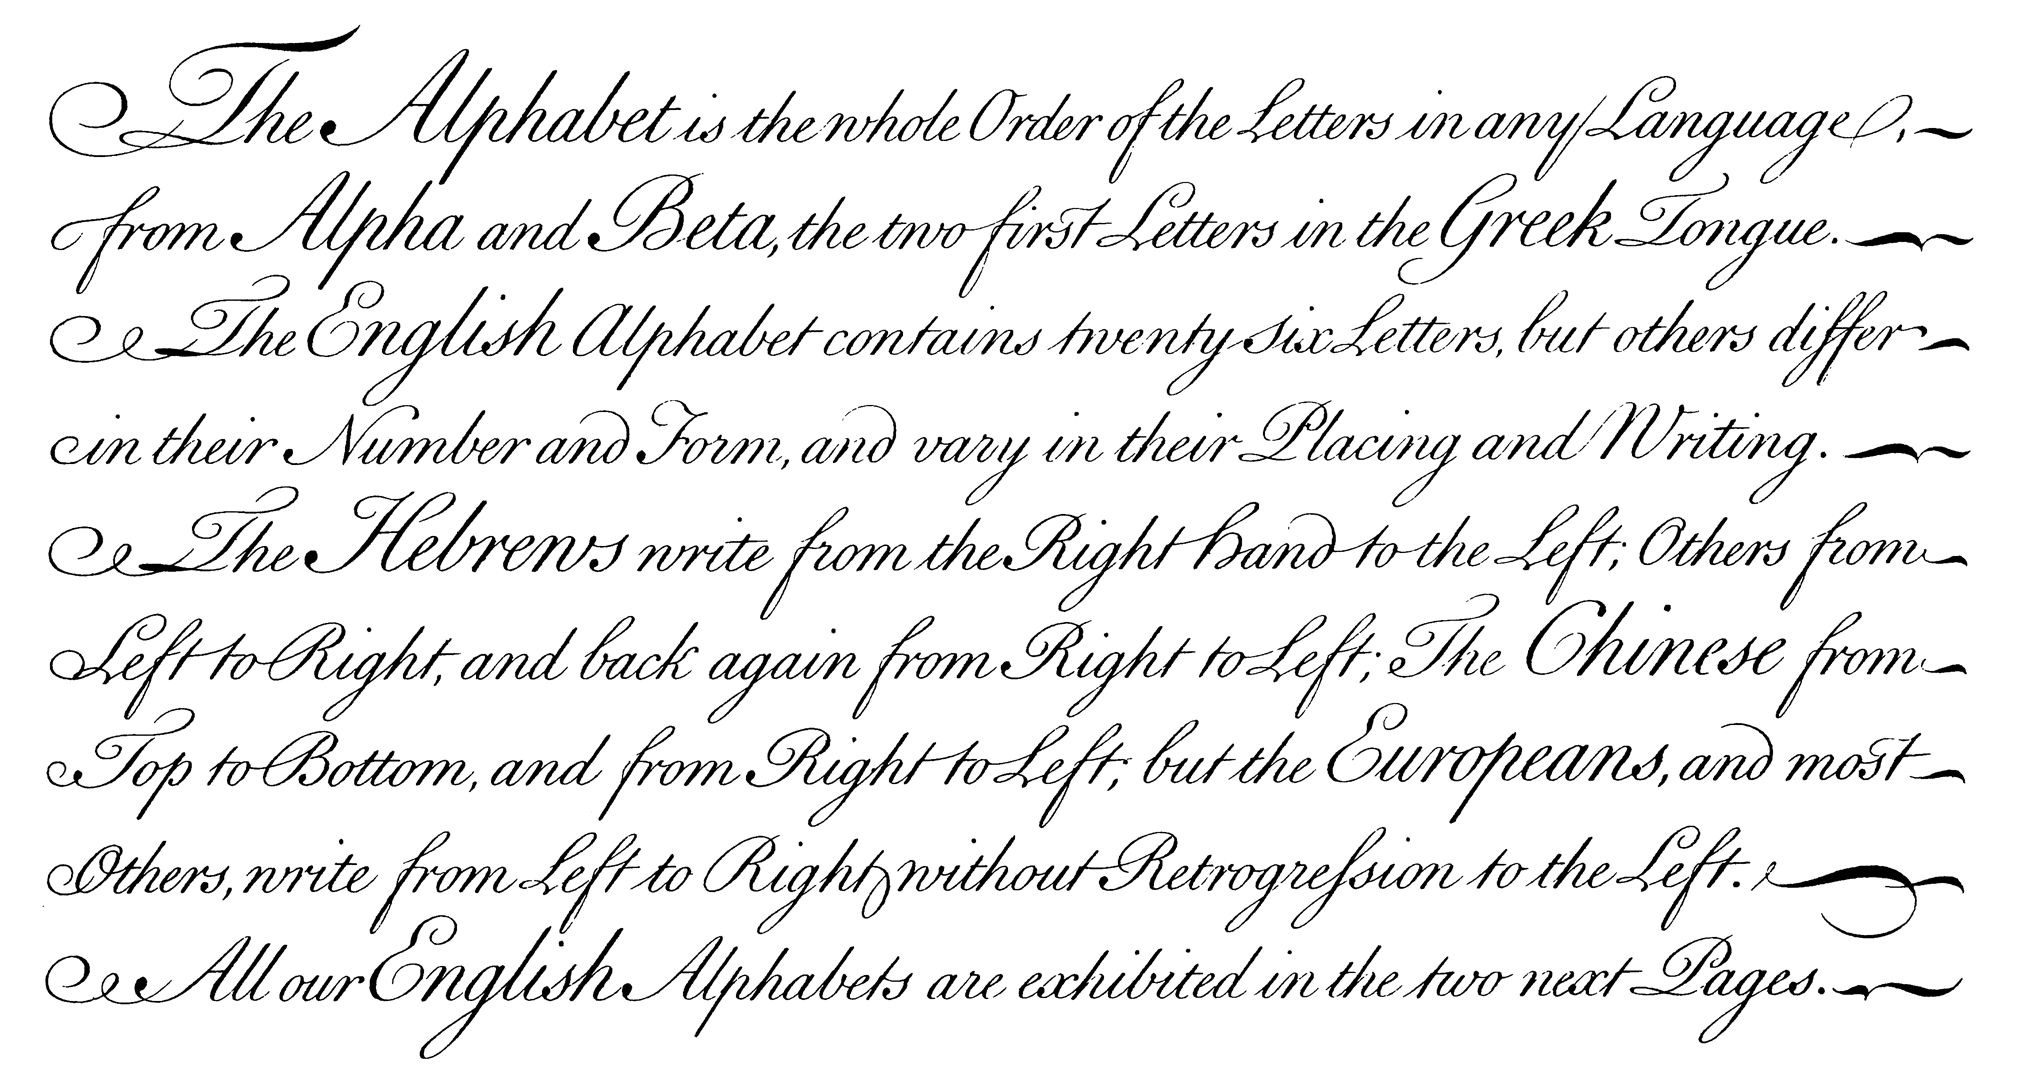 The Alphabet is the whole Order of the Letters in any Language,
from Alpha and Beta, the two first Letters in the Greek Tongue.
The English Alphabet contains twenty six Letters, but others differ
in their Number and Form, and vary in their Placing and Writing.
The Hebrews write from the Right hand to the Left; Others from
Left to Right, and back again from Right to Left; The Chinese from
Top to Bottom, and from Right to Left; but the Europeans, and most
Others, write from Left to Right, without Retrogreſsion to the Left.
All our English Alphabets are exhibited in the two next Pages.